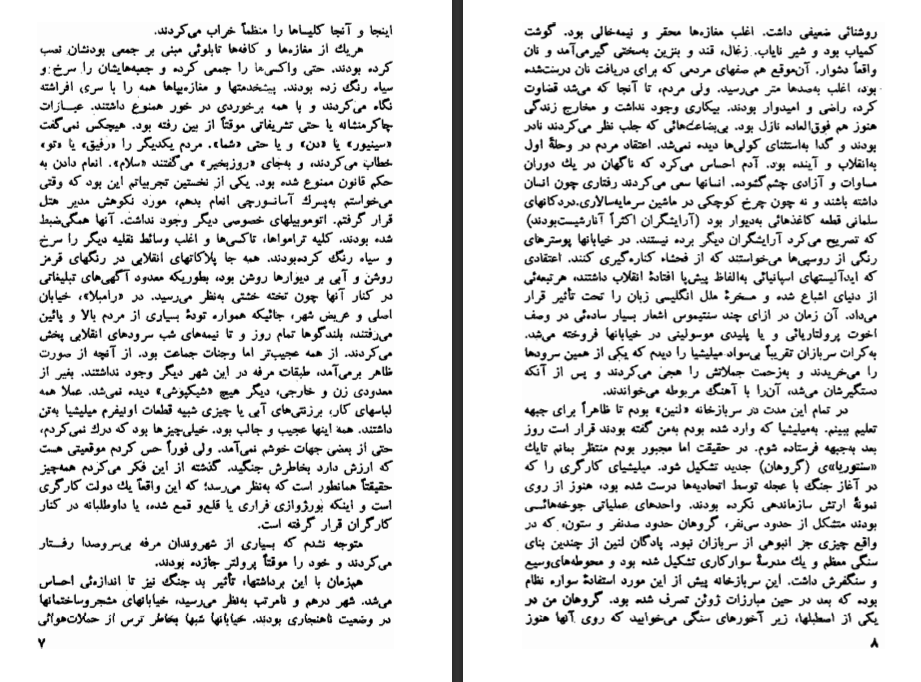 اینجا و آنجا کلیساها را منظماً خراب می‌کردند.
هریك از مغازه‌ها و کافه‌ها تابلوئی مبنی بر جمعی بودنشان نصب
کرده بودند. حتی واکسی‌ها را جمعی کرده و جعبه‌هایشان را سرخ و
سیاه رنگ زده بودند. پیشخدمتها و مغازه‌پیاها همه را با سری افراشته
نگاه می‌کردند و با همه برخوردی در خور همنوع داشتند. عبارات
چاکرمنشانه یا حتی تشریفاتی موقتاً از بین رفته بود. هیچکس نمی‌گفت
«سینیور» یا «دن» و یا حتی «شما». مردم یکدیگر را «رفیق» یا «تو»
خطاب می‌کردند، و به‌جای «روزبخیر» می‌گفتند «سلام». انعام دادن به
حکم قانون ممنوع شده بود. یکی از نخستین تجربیاتم این بود که وقتی
می‌خواستم به‌پسرك آسانسورچی انعام بدهم، مورد نکوهش مدیر هتل
قرار گرفتم. اتوموبیلهای خصوصی دیگر وجود نداشت. آنها همگی‌ضبط
شده بودند. کلیه ترامواها، تاکسی‌ها و اغلب وسائط نقلیه دیگر را سرخ
و سیاه رنگ کرده‌بودند. همه جا پلاکاتهای انقلابی در رنگهای قرمز
روشن و آبی بر دیوارها روشن بود، بطوریکه معدود آگهی‌های تبلیغاتی
در کنار آنها چون تخته خشتی به‌نظر می‌رسید. در «رامبلا»، خیابان
اصلی و عریض شهر، جائیکه همواره تودهٔ بسیاری از مردم بالا و پائین
می‌رفتند، بلندگوها تمام روز و تا نیمه‌های شب سرودهای انقلابی پخش
می‌کردند. از همه عجیب‌تر اما وجنات جماعت بود. از آنچه از صورت
ظاهر برمی‌آمد، طبقات مرفه در این شهر دیگر وجود نداشتند. بغیر از
معدودی زن و خارجی، دیگر هیچ «شیکپوشی» دیده نمی‌شد. عملا همه
لباسهای کار، برزنتی‌های آبی یا چیزی شبیه قطعات اونیفرم میلیشیا به‌تن
داشتند. همه اینها عجیب و جالب بود. خیلی‌چیزها بود که درك نمی‌کردم،
حتی از بعضی جهات خوشم نمی‌آمد. ولی فوراً حس کردم موقعیتی هست
که ارزش دارد بخاطرش جنگید. گذشته از این فکر می‌کردم همه‌چیز
حقیقتاً همانطور است که به‌نظر می‌رسد؛ که این واقعاً یك دولت کارگری
است و اینکه بورژوازی فراری یا قلع‌و قمع شده، یا داوطلبانه در کنار
کارگران قرار گرفته است.
متوجه نشدم که بسیاری از شهروندان مرفه بی‌سروصدا رفتار
می‌کردند و خود را موقتاً پرولتر جازده بودند.
همزمان با این برداشتها، تأثیر بد جنگ نیز تا اندازه‌ئی احساس
می‌شد. شهر درهم و نامرتب به‌نظر می‌رسید، خیابانهای مشجروساختمانها
در وضعیت ناهنجاری بودند. خیابانها شبها بخاطر ترس از حملات‌هوائی
۷
روشنائی ضعیفی داشت. اغلب مغازه‌ها محقر و نیمه‌خالی بود. گوشت
کمیاب بود و شیر نایاب. زغال، قند و بنزین به‌سختی گیرمی‌آمد و نان
واقعاً دشوار. آن‌موقع هم صفهای مردمی که برای دریافت نان درست‌شده
بود، اغلب به‌صدها متر می‌رسید. ولی مردم، تا آنجا که می‌شد قضاوت
کرد، راضی و امیدوار بودند. بیکاری وجود نداشت و مخارج زندگی
هنوز هم فوق‌العاده نازل بود. بی‌بضاعت‌هائی که جلب نظر می‌کردند نادر
بودند و گدا به‌استثنای کولی‌ها دیده نمی‌شد. اعتقاد مردم در وحلهٔ اول
به‌انقلاب و آینده بود. آدم احساس می‌کرد که ناگهان در یك دوران
مساوات و آزادی چشم‌گشوده. انسانها سعی می‌کردند رفتاری چون انسان
داشته باشند و نه چون چرخ کوچکی در ماشین سرمایه‌سالاری.دردکانهای
سلمانی قطعه کاغذهائی به‌دیوار بود (آرایشگران اکثراً آنارشیست‌بودند)
که تصریح می‌کرد آرایشگران دیگر برده نیستند. در خیابانها پوسترهای
رنگی از روسپی‌ها می‌خواستند که از فحشاء کناره‌گیری کنند. اعتقادی
که ایدآلیستهای اسپانیائی به‌الفاظ پیش‌پا افتادهٔ انقلاب داشتند، هرتبعه‌ئی
از دنیای اشباع شده و مسخرهٔ ملل انگلیسی زبان را تحت تأثیر قرار
می‌داد. آن زمان در ازای چند سنتیموس اشعار بسیار ساده‌ئی در وصف
اخوت پرولتاریائی و یا پلیدی موسولینی در خیابانها فروخته می‌شد.
به‌کرات سربازان تقریباً بی‌سواد میلیشیا را دیدم که یکی از همین سرودها
را می‌خریدند و به‌زحمت جملاتش را هجی می‌کردند و پس از آنکه
دستگیرشان می‌شد، آن‌را با آهنگ مربوطه می‌خواندند.
در تمام این مدت در سربازخانه «لنین» بودم تا ظاهراً برای جبهه
تعلیم ببینم. به‌میلیشیا که وارد شده بودم به‌من گفته بودند قرار است روز
بعد به‌جبهه فرستاده شوم. در حقیقت اما مجبور بودم منتظر بمانم تایك
«سنتوریا»ی (گروهان) جدید تشکیل شود. میلیشیای کارگری را که
در آغاز جنگ با عجله توسط اتحادیه‌ها درست شده بود، هنوز از روی
نمونهٔ ارتش سازماندهی نکرده بودند. واحدهای عملیاتی جوخه‌هائی
بودند متشکل از حدود سی‌نفر، گروهان حدود صدنفر و ستون، که در
واقع چیزی جز انبوهی از سربازان نبود. پادگان لنین از چندین بنای
سنگی معظم و یك مدرسهٔ سوارکاری تشکیل شده بود و محوطه‌های‌وسیع
و سنگفرش داشت. این سربازخانه پیش از این مورد استفادهٔ سواره نظام
بوده که بعد در حین مبارزات ژوئن تصرف شده بود. گروهان من در
یکی از اصطبلها، زیر آخورهای سنگی می‌خوابید که روی آنها هنوز
۸